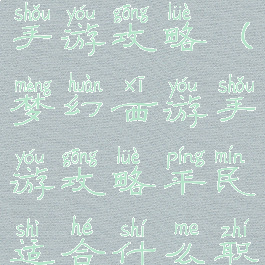 shǒu yóu gōng lüè
手游攻略（
mèng huàn xī yóu shǒu
梦幻西游手
yóu gōng lüè píng mín
游攻略平民
shì hé shí me zhí
适合什么职